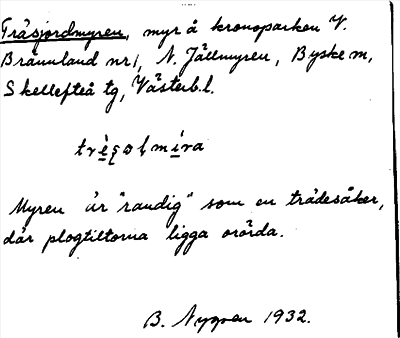 Träsjordmyren, myr å kronoparken V.
Brännland nr 1, N. Jällmyren, Byske m,
Skellefteå tg, Västerb.l.
Myren är "randig" som en trädesåker,
där plogtiltorna ligga orörda.
B. Nygren 1932.